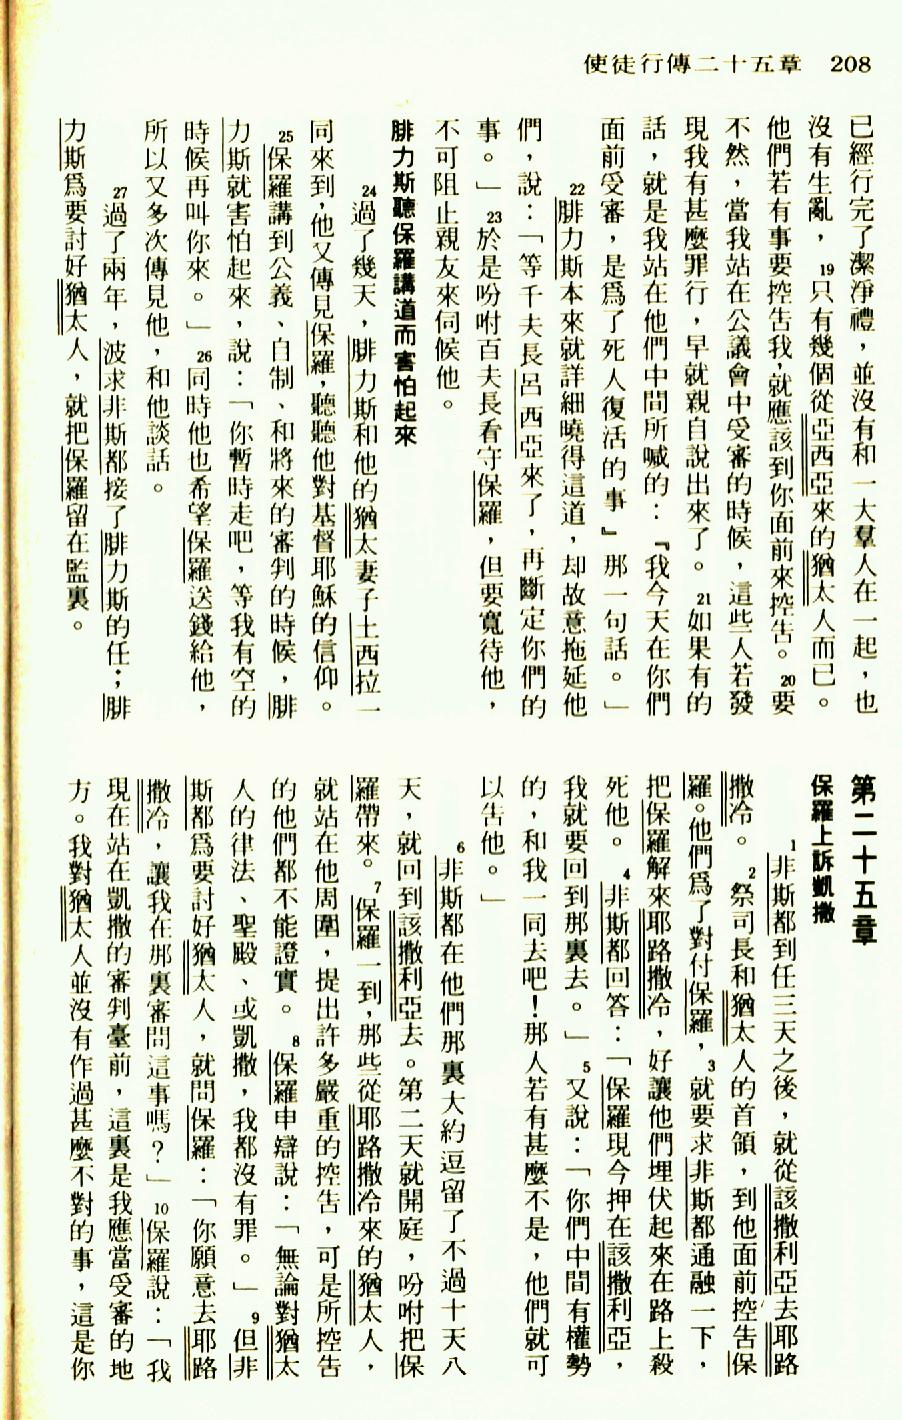 使徒行傳二十五章 208
已經行完了潔淨禮，並沒有和一大羣人在一起，也
沒有生亂， 19只有幾個從亞西亞來的猶太人而已。
他們若有事要控告我，就應該到你面前來控告。 20要
不然，當我站在公議會中受審的時候，這些人若發
現我有甚麼罪行，早就親自說出來了。 21如果有的
話，就是我站在他們中間所喊的：『我今天在你們
面前受審，是爲了死人復活的事』那一句話。」
22腓力斯本來就詳細曉得這道，却故意拖延他
們，說：「等千夫長呂西亞來了，再斷定你們的
事。」 23於是吩咐百夫長看守保羅，但要寬待他，
不可阻止親友來伺候他。
腓力斯聽保羅講道而害怕起來
24過了幾天，腓力斯和他的猶太妻子土西拉一
同來到，他又傳見保羅，聽聽他對基督耶穌的信仰。
25保羅講到公義、自制、和將來的審判的時候，腓
力斯就害怕起來，說：「你暫時走吧，等我有空的
時候再叫你來。」 26同時他也希望保羅送錢給他，
所以又多次傳見他，和他談話。
27過了兩年，波求非斯都接了腓力斯的任；腓
力斯爲要討好猶太人，就把保羅留在監裏。
第二十五章
保羅上訴凱撒
1非斯都到任三天之後，就從該撒利亞去耶路
撒冷。 2祭司長和猶太人的首領，到他面前控告保
羅。他們爲了對付保羅， 3就要求非斯都通融一下，
把保羅解來耶路撒冷，好讓他們埋伏起來在路上殺
死他。 4非斯都回答：「保羅現今押在該撒利亞，
我就要回到那裏去。」 5又說：「你們中間有權勢
的，和我一同去吧！那人若有甚麼不是，他們就可
以告他。」
6非斯都在他們那裏大約逗留了不過十天八
天，就回到該撒利亞去。第二天就開庭，吩咐把保
羅帶來。 7保羅一到，那些從耶路撒冷來的猶太人，
就站在他周圍，提出許多嚴重的控告，可是所控告
的他們都不能證實。 8保羅申辯說：「無論對猶太
人的律法、聖殿、或凱撒，我都沒有罪。」 9但非
斯都爲要討好猶太人，就問保羅：「你願意去耶路
撒冷，讓我在那裏審問這事嗎？」 10保羅說：「我
現在站在凱撒的審判臺前，這裏是我應當受審的地
方。我對猶太人並沒有作過甚麼不對的事，這是你